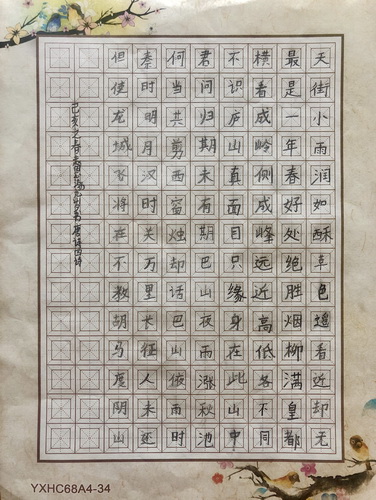 天街小雨润如酥草色遥看近却无
最是一年春好处绝胜烟柳满皇都
横看成岭侧成峰远近高低各不同
不识庐山真面目只缘身在此山中
君问归期未有期巴山夜雨涨秋池
何当共剪西窗烛却话巴山夜雨时
秦时明月汉时关万里长征人未还
但使龙城飞将在不教胡马度阴山
己亥之春书唐诗四首
YXHC68A4-34